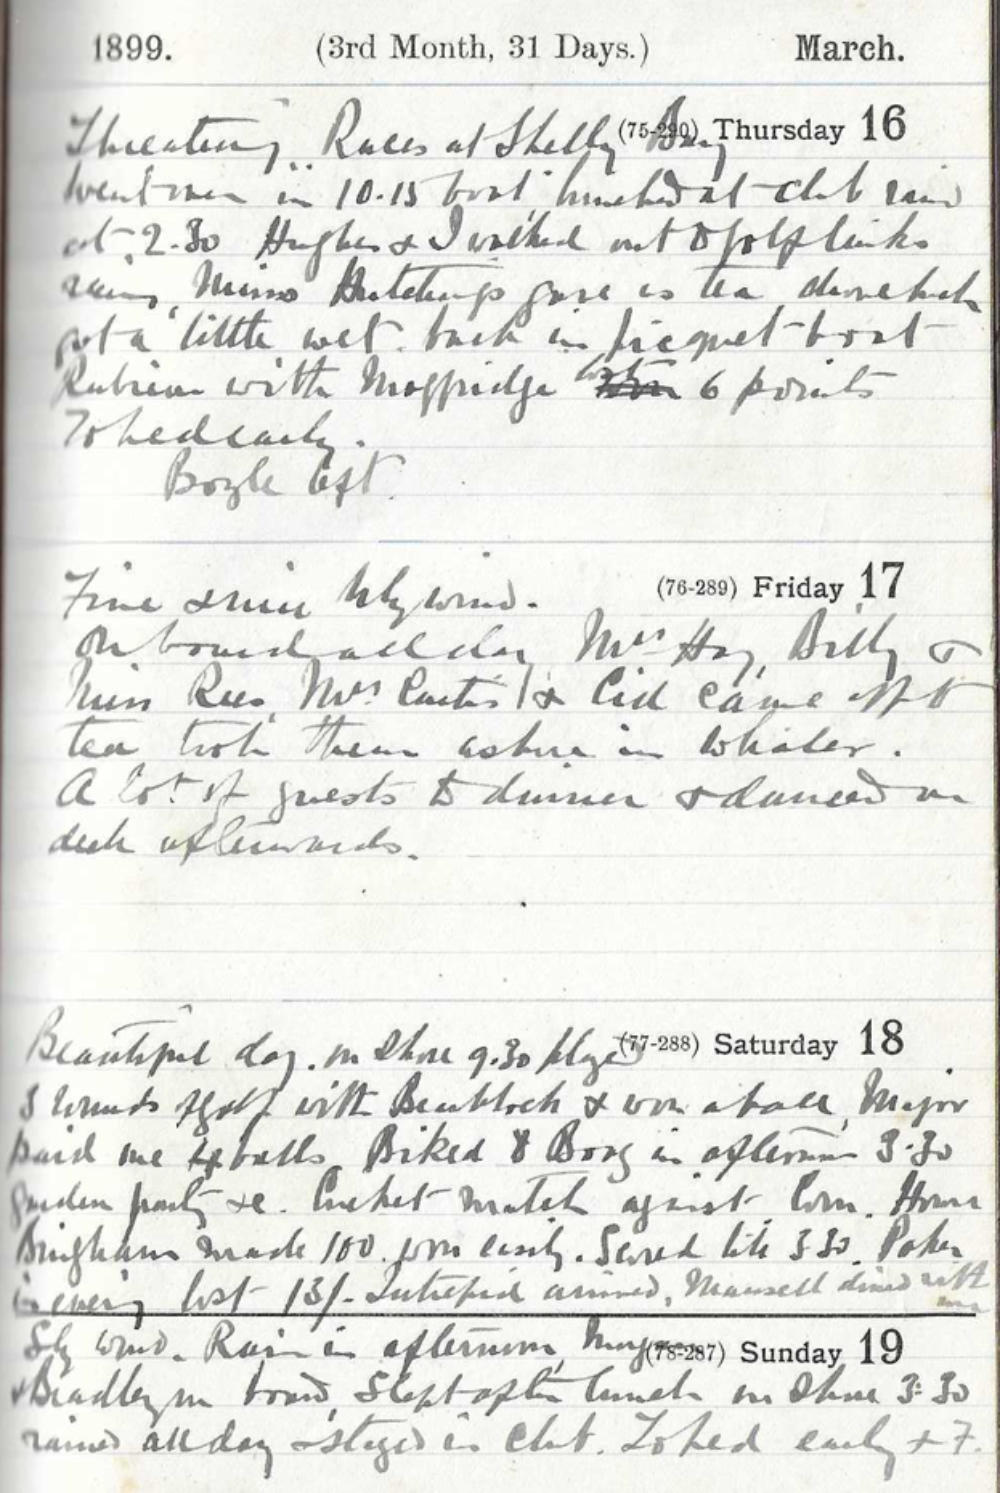 1899. (3rd Month, 31 Days.) March.
(75-290) Thursday 16
Threatening Races at Shelly Bay
went over in 10.15 boat lunched at club rain
at 2.30 Hughes & I walked out to golf links
rainy, Misses Hutchings gave us tea, drove back
got a little wet. back in picquet boat
Rubicon with Moggridge lost 6 points
To bed early.
Boyle left.
(76-289) Friday 17
Fine & nice Nly wind.
On board all day Mrs Hay, Billy &
Miss Rees, Mrs Curtis & Cid came off to
tea took them ashore in whaler.
A lot of guests to dinner & danced on
deck afterwards.
(77-288) Saturday 18
Beautiful day. on shore 9.30 played
3 rounds of golf with & won a ball, Major
paid me 4 balls. Biked to Boaz in afternoon 3.30
garden party &c. Cricket match against Com. House
Bingham made 100. won easily. Scored till 3.30. Poker
in evening lost 13/- Intrepid arrived, Mansell dined with
me
(78-287) Sunday 19
Sly wind. Rain in afternoon,
& Bradley on board, Slept after lunch on shore 3.30
rained all day & stayed in Club. To bed early + 7.